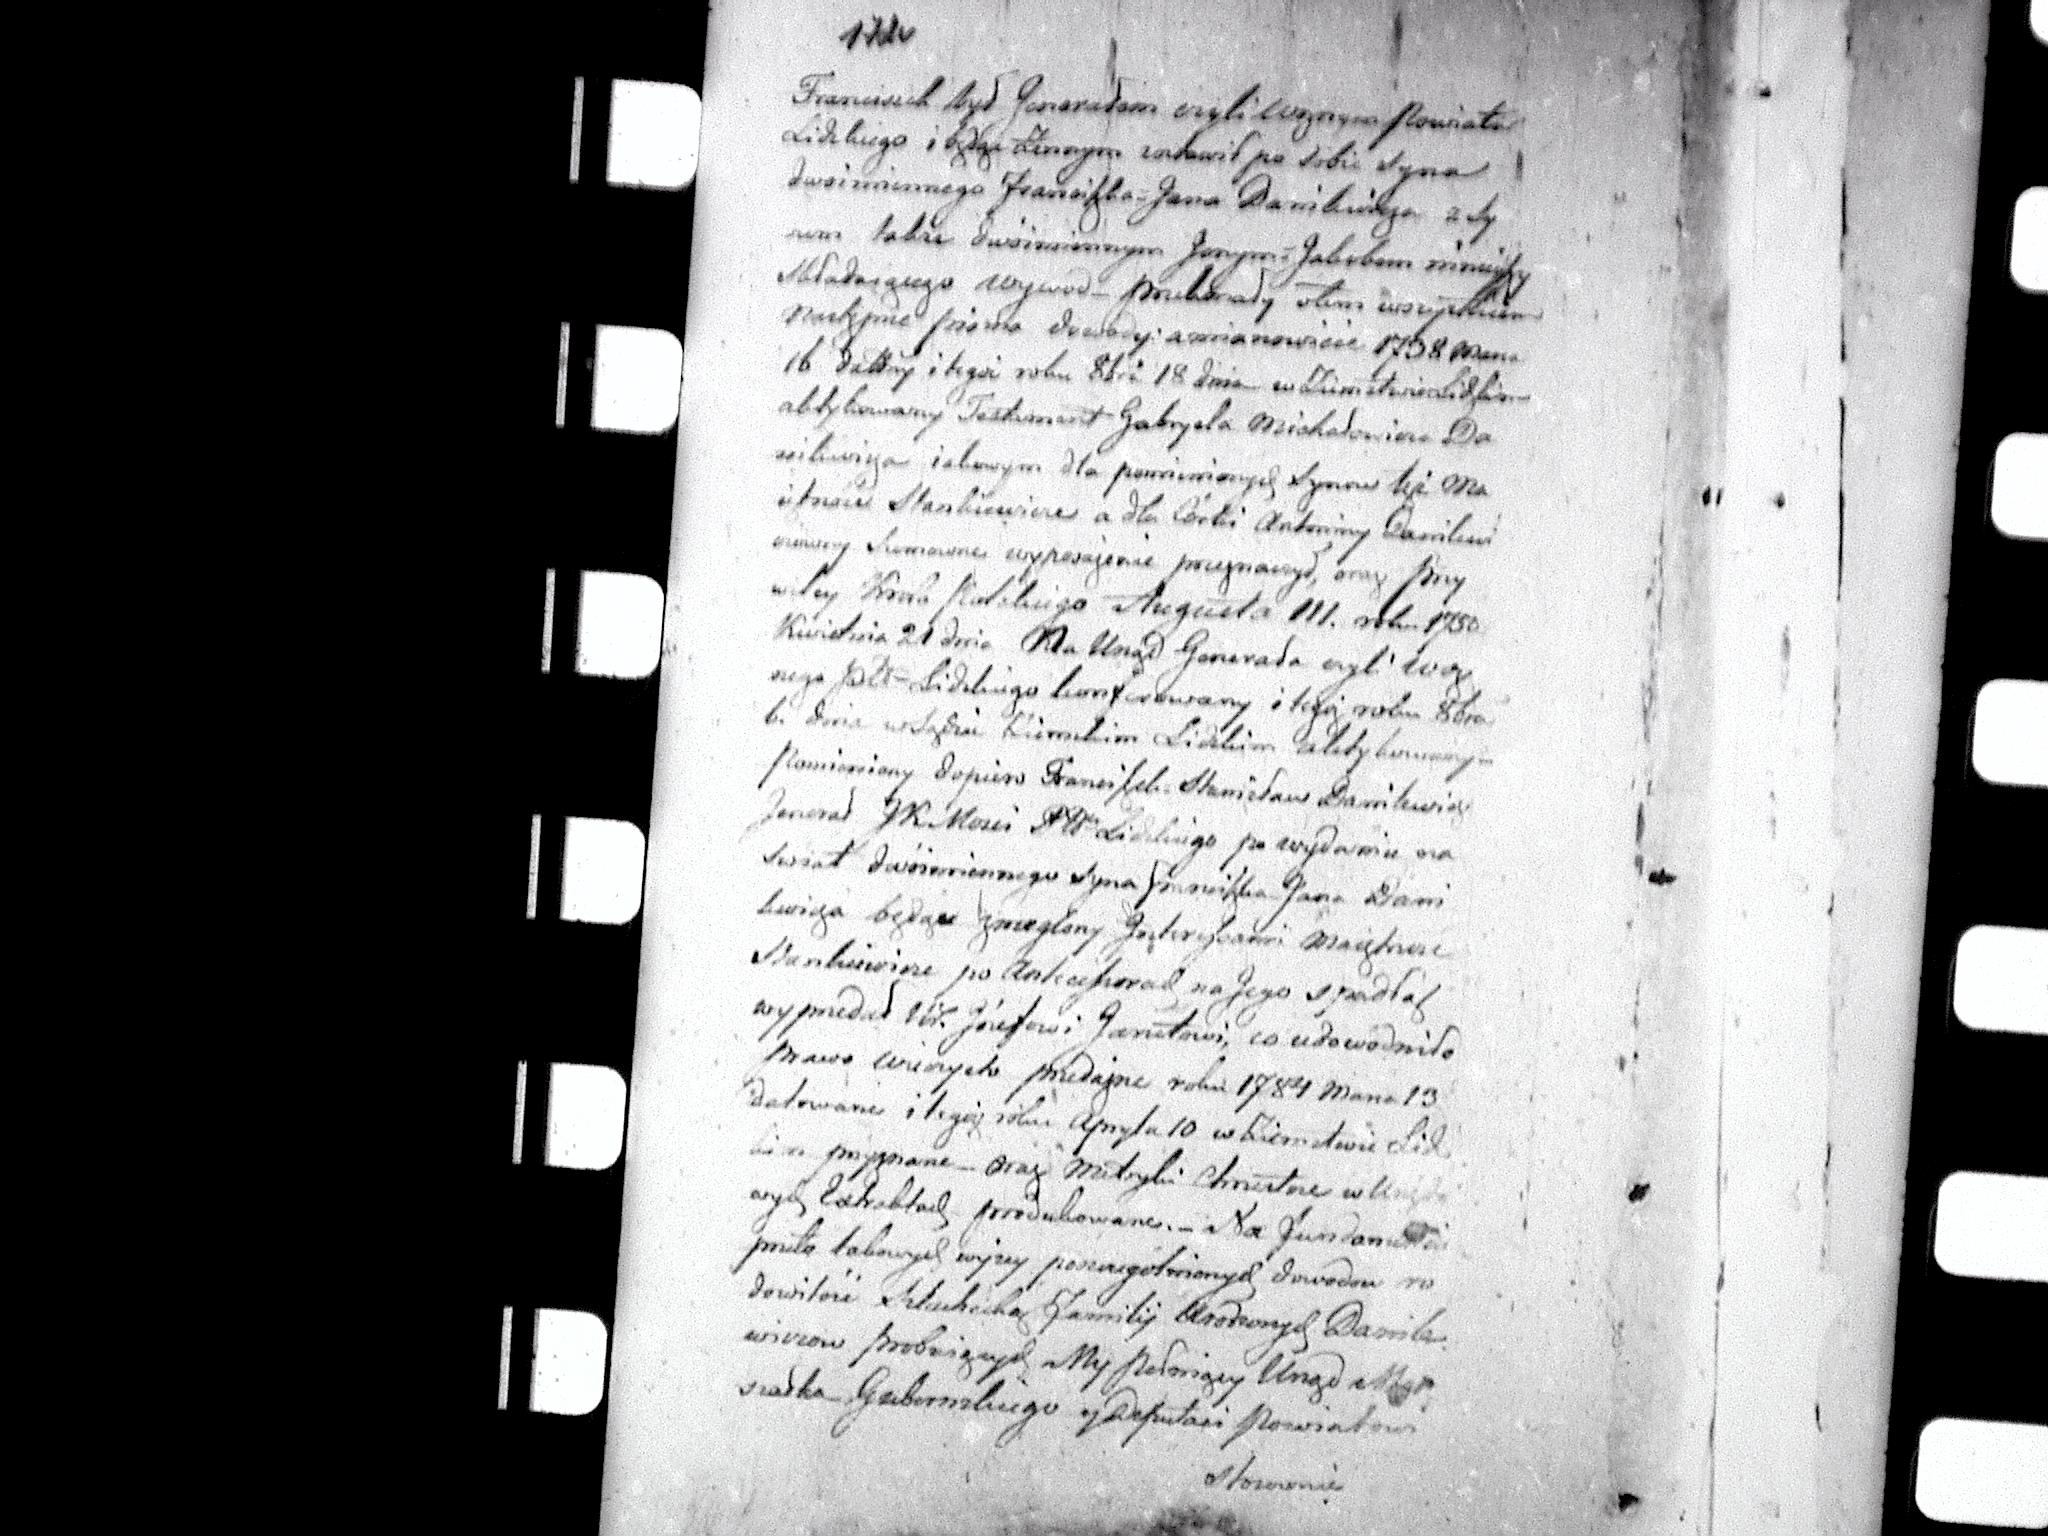 Franciszek był Generałem czyli Woznym Powiatu
Lidzkiego i będąc Żennym zostawił po sobie syna
dwoimiennego Franciszka-Jana Danilewicza z Sy
nem także dwoimiennym Jakubem ninieyszy
składaiącego wywod
następne pisma dowody: a mianowicie 1738 Marca
16 datny i tegoż roku 8bra 18 dnia w Ziemstwie Lidzkim
aktykowany Testament Gabryela Michałowicza Da
nilewicza iakowym dla pomienionych Synow też Ma
iętność Stankiewicze a dla Córki Antoniny Danilewi
czowny summowne wyposażenie przeznaczył, oraz Przy
wiley Króla Polskiego Augusta III. roku 1750
Kwietnia 21 dnia Na Urząd Generała czyli Woz
nego Ptu Lidzkiego konferowany i tegoż roku 8bra
6. dnia w Sądzie Ziemskim Lidzkim aktykowany
Pomieniony dopiero Franciszek Stanisław Danilewicz
Jenerał JK Mości Ptu Lidzkiego po wydaniu na
swiat dwóimiennego syna Franciszka Jana Dani
lewicza będąc Interessami Maiętność
Stankiewicze po Antecessorach na Jego spadłą
wyprzedał Ur. Józefowi co udowodniło
Prawo wieczysto przedażne roku 1784 Marca 13
datowane i tegoż roku Apryla 10 w Ziemstwie Lidz
kim przyznane oraz Metryki Chrzestne w Urzędo
wych Extraktach produkowane. Na Fundamencie
przeto takowych wyżey poszczegolnionych dowodow ro
dowitość Szlachecką Familij Urodzonych Danile
wiczow probuiących My Pełniący Urząd Mar
szałka Gubernskiego y Deputaci Powiatowi
Stosownie